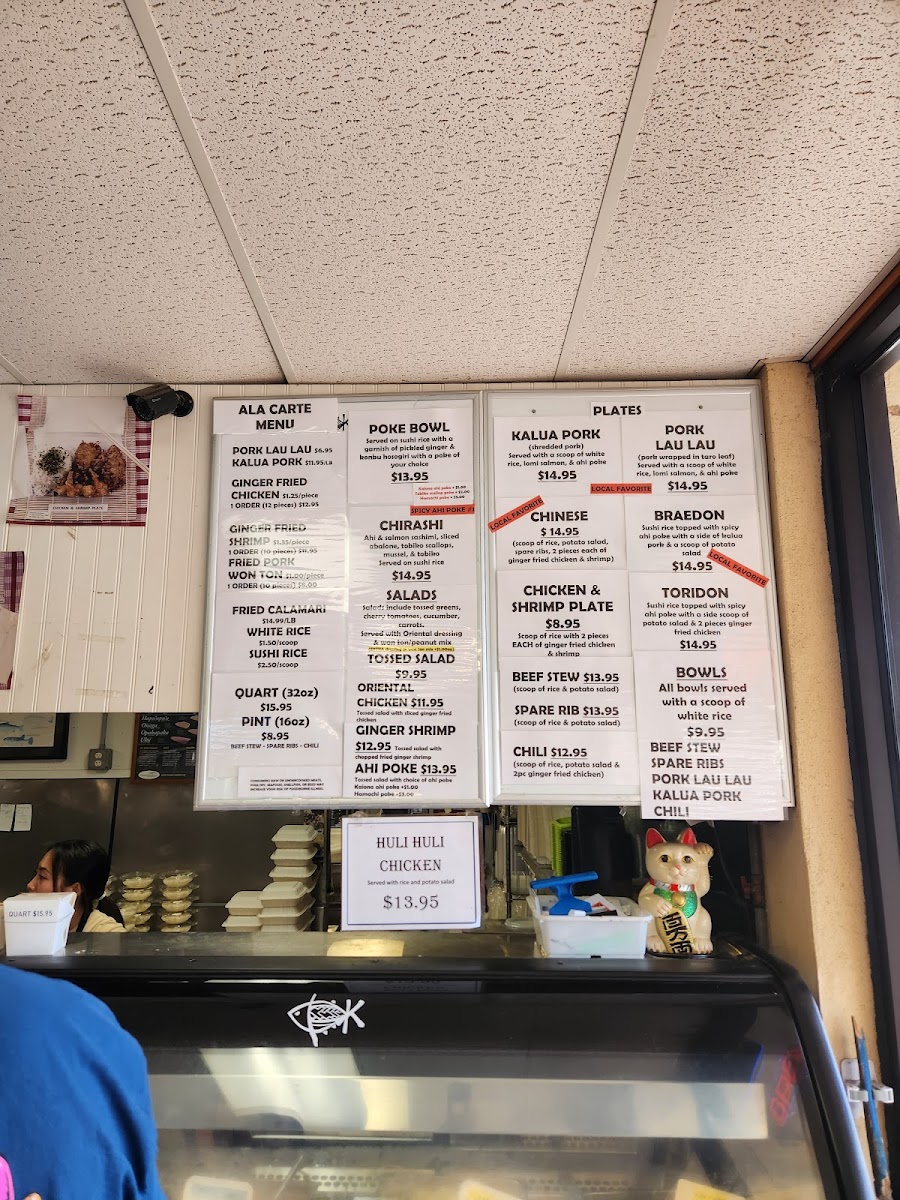 ALA CARTE
MENU
PORK LAU LAU $6.95
KALUA PORK $11.95/LB
GINGER FRIED
CHICKEN $1.25/piece
1 ORDER (12 pieces) $12.95
GINGER FRIED
SHRIMP $1.35/piece
1 ORDER (10 pieces) $11.95
FRIED PORK
WON TON $1.00/piece
1 ORDER (10 pieces) $8.00
FRIED CALAMARI
$14.99/LB
WHITE RICE
$1.50/scoop
SUSHI RICE
$2.50/scoop
QUART (32oz)
$15.95
PINT (16oz)
$8.95
BEEF STEW - SPARE RIBS - CHILI
CONSUMING RAW OR UNDERCOOKED MEATS,
POULTRY, SEAFOOD, SHELLFISH, OR EGGS MAY
INCREASE YOUR RISK OF FOODBORNE ILLNESS.
POKE BOWL
Served on sushi rice with a
garnish of pickled ginger &
konbu hosogiri with a poke of
your choice
$13.95
SPICY AHI POKE
CHIRASHI
Ahi & salmon sashimi, sliced
abalone, tobiko scallops,
mussel, & tobiko
Served on sushi rice
$14.95
SALADS
Salads include tossed greens,
cherry tomatoes, cucumber,
carrots.
Served with Oriental dressing
& won ton/peanut mix
TOSSED SALAD
$9.95
ORIENTAL
CHICKEN $11.95
Tossed salad with sliced ginger fried
chicken
GINGER SHRIMP
$12.95 Tossed salad with
chopped fried ginger shrimp
AHI POKE $13.95
Tossed salad with choice of ahi poke
Kaiona ahi poke +$1.00
Hamachi poke +$3.00
PLATES
KALUA PORK
(shredded pork)
Served with a scoop of white
rice, lomi salmon, & ahi poke
$14.95
LOCAL FAVORITE
CHINESE
$ 14.95
(scoop of rice, potato salad,
spare ribs, 2 pieces each of
ginger fried chicken & shrimp)
CHICKEN &
SHRIMP PLATE
$8.95
Scoop of rice with 2 pieces
EACH of ginger fried chicken
& shrimp
BEEF STEW $13.95
(scoop of rice & potato salad)
SPARE RIB $13.95
(scoop of rice & potato salad)
CHILI $12.95
(scoop of rice, potato salad &
2pc ginger fried chicken)
PORK
LAU LAU
(pork wrapped in taro leaf)
Served with a scoop of white
rice, lomi salmon, & ahi poke
$14.95
LOCAL FAVORITE
BRAEDON
Sushi rice topped with spicy
ahi poke with a side of kalua
pork & a scoop of potato
salad
$14.95
LOCAL FAVORITE
TORIDON
Sushi rice topped with spicy
ahi poke with a side scoop of
potato salad & 2 pieces ginger
fried chicken
$14.95
BOWLS
All bowls served
with a scoop of
white rice
$9.95
BEEF STEW
SPARE RIBS
PORK LAU LAU
KALUA PORK
CHILI
HULI HULI
CHICKEN
Served with rice and potato salad
$13.95
CHICKEN & SHRIMP PLATE
QUART $15.95